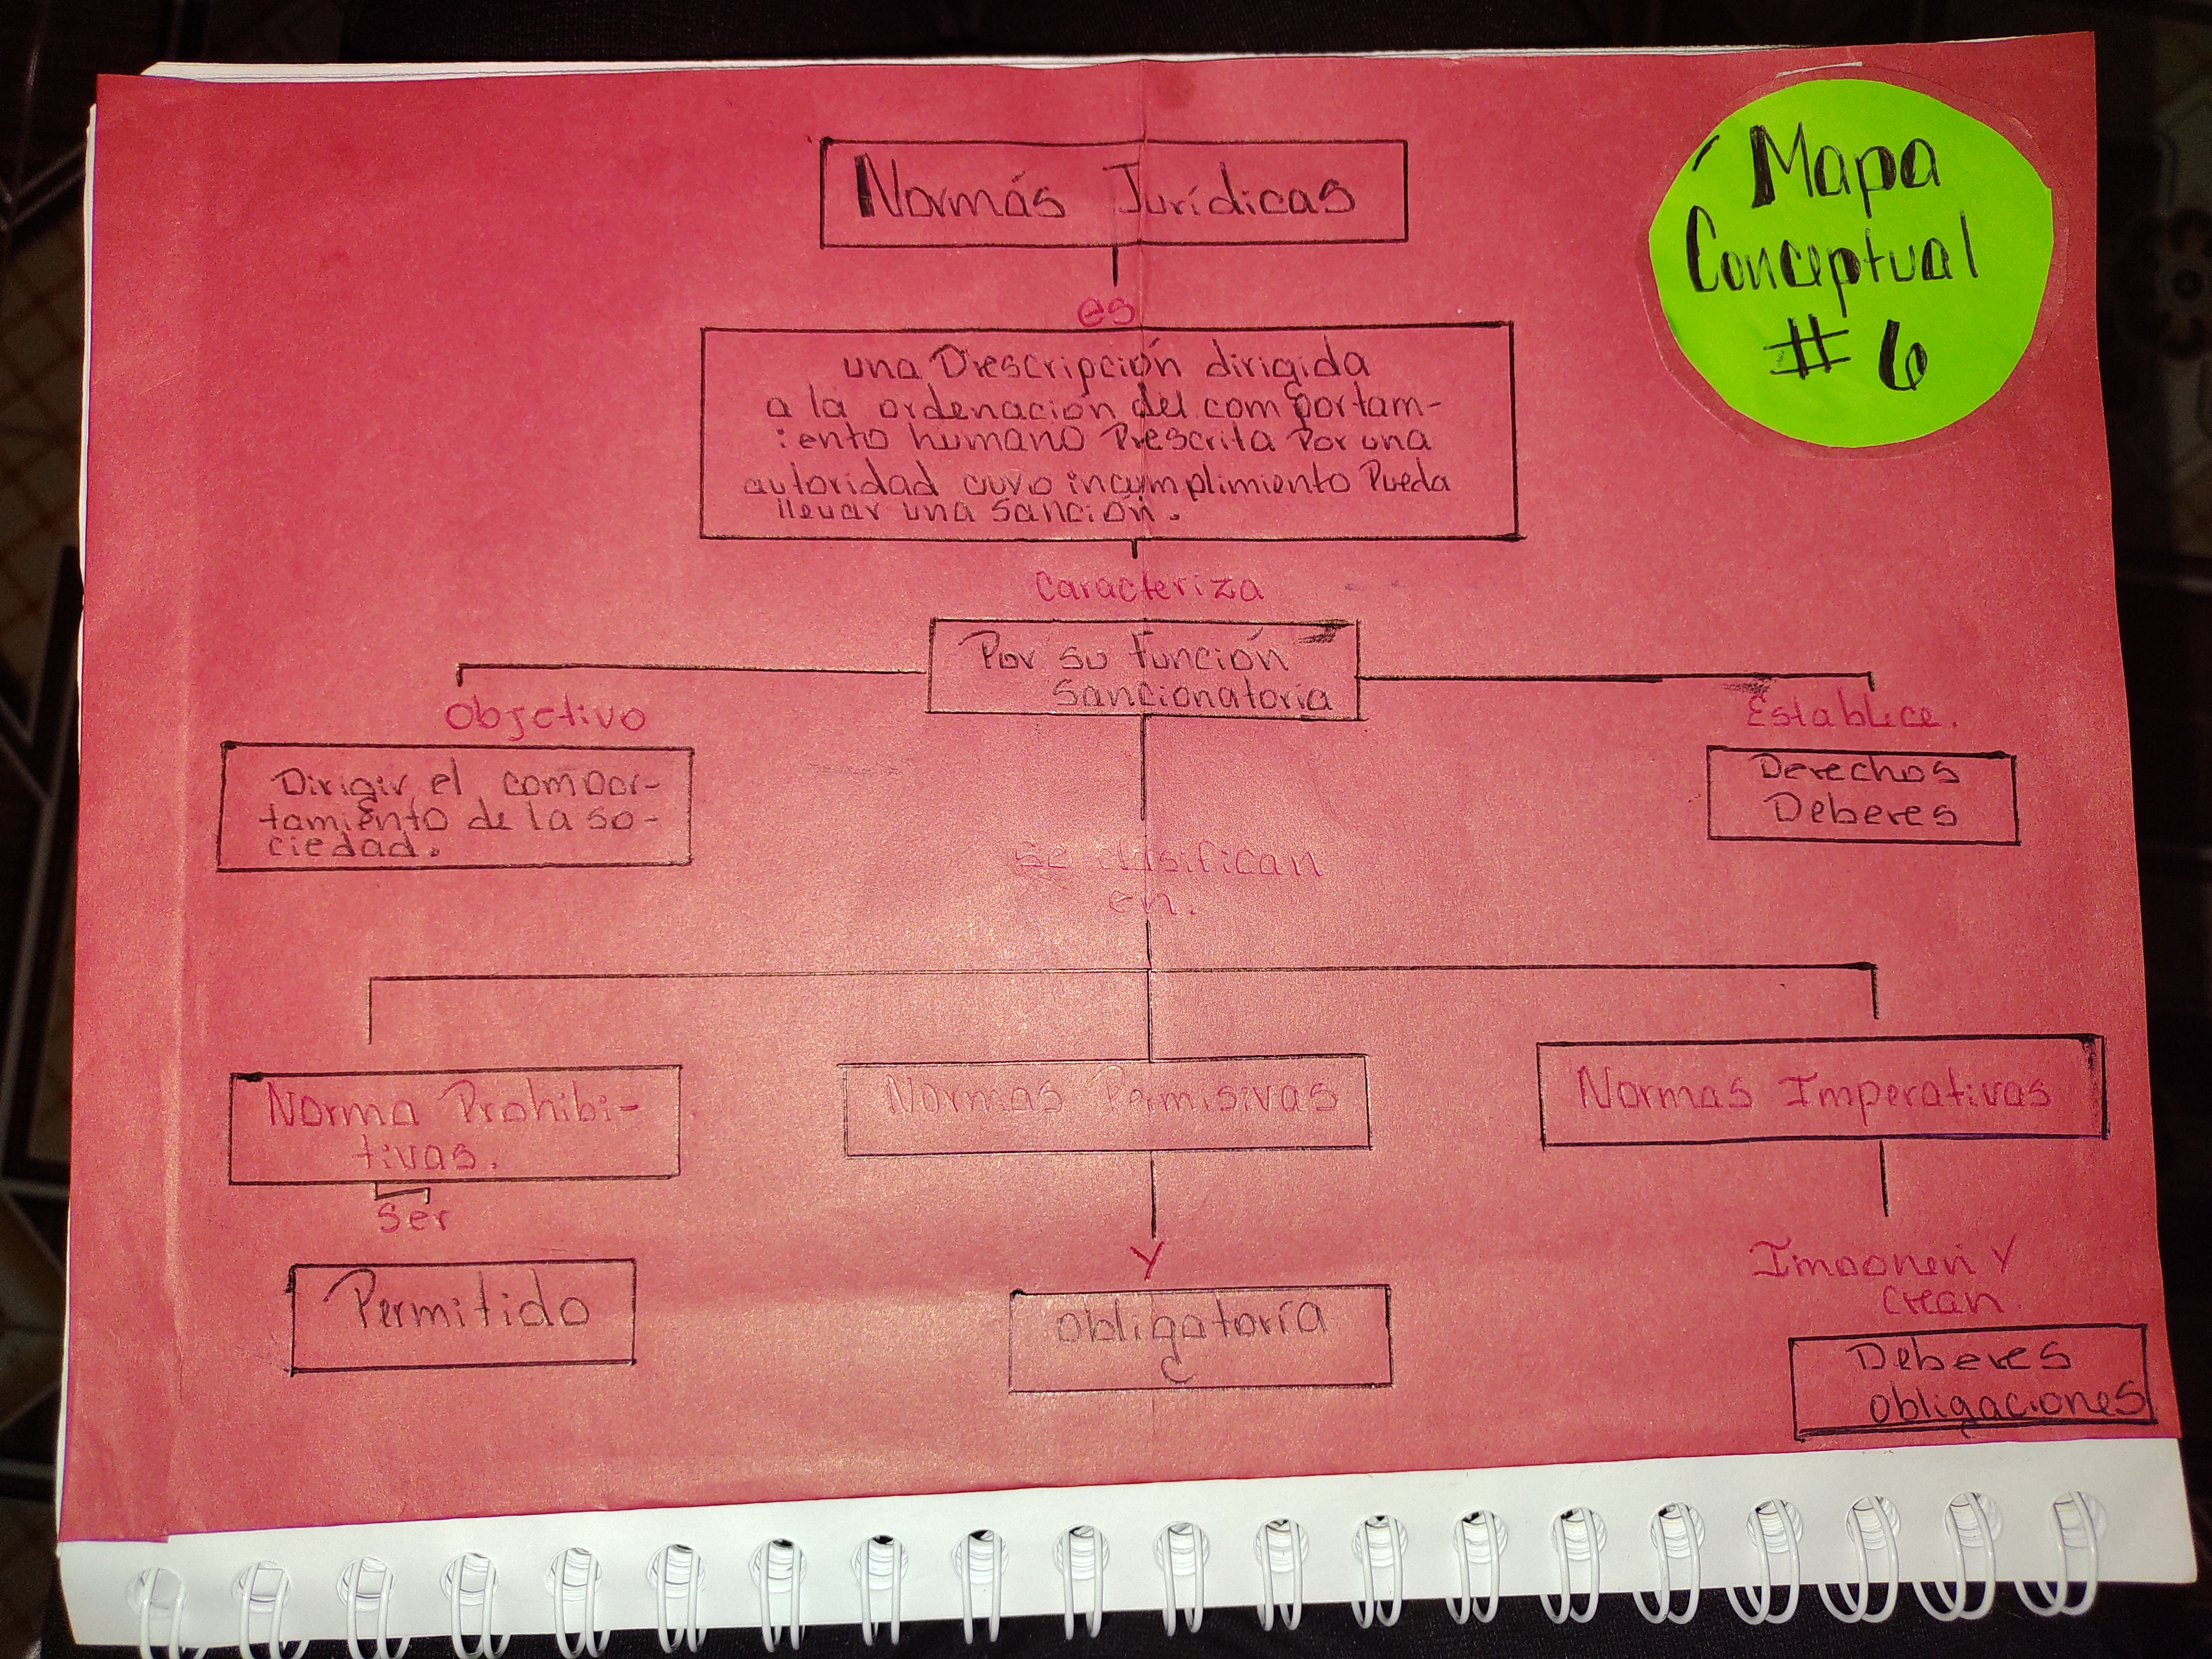 Normás Jurídicas
Mapa
Conceptual
# 6
es
una Prescripción dirigida
a la ordenación del comportam-
iento humano Prescrita Por una
autoridad cuyo incumplimiento Pueda
llevar una Sanción.
Caracteriza
Por su función
Sancionatoria
Objetivo
Establece.
Dirigir el compor-
tamiento de la so-
ciedad.
Derechos
Deberes
Se clasifican
en.
Norma Prohibi-
tivas.
Normas Permisivas
Normas Imperativas
Ser
Y
Imponen Y
crean
Permitido
obligatoria
Deberes
obligaciones